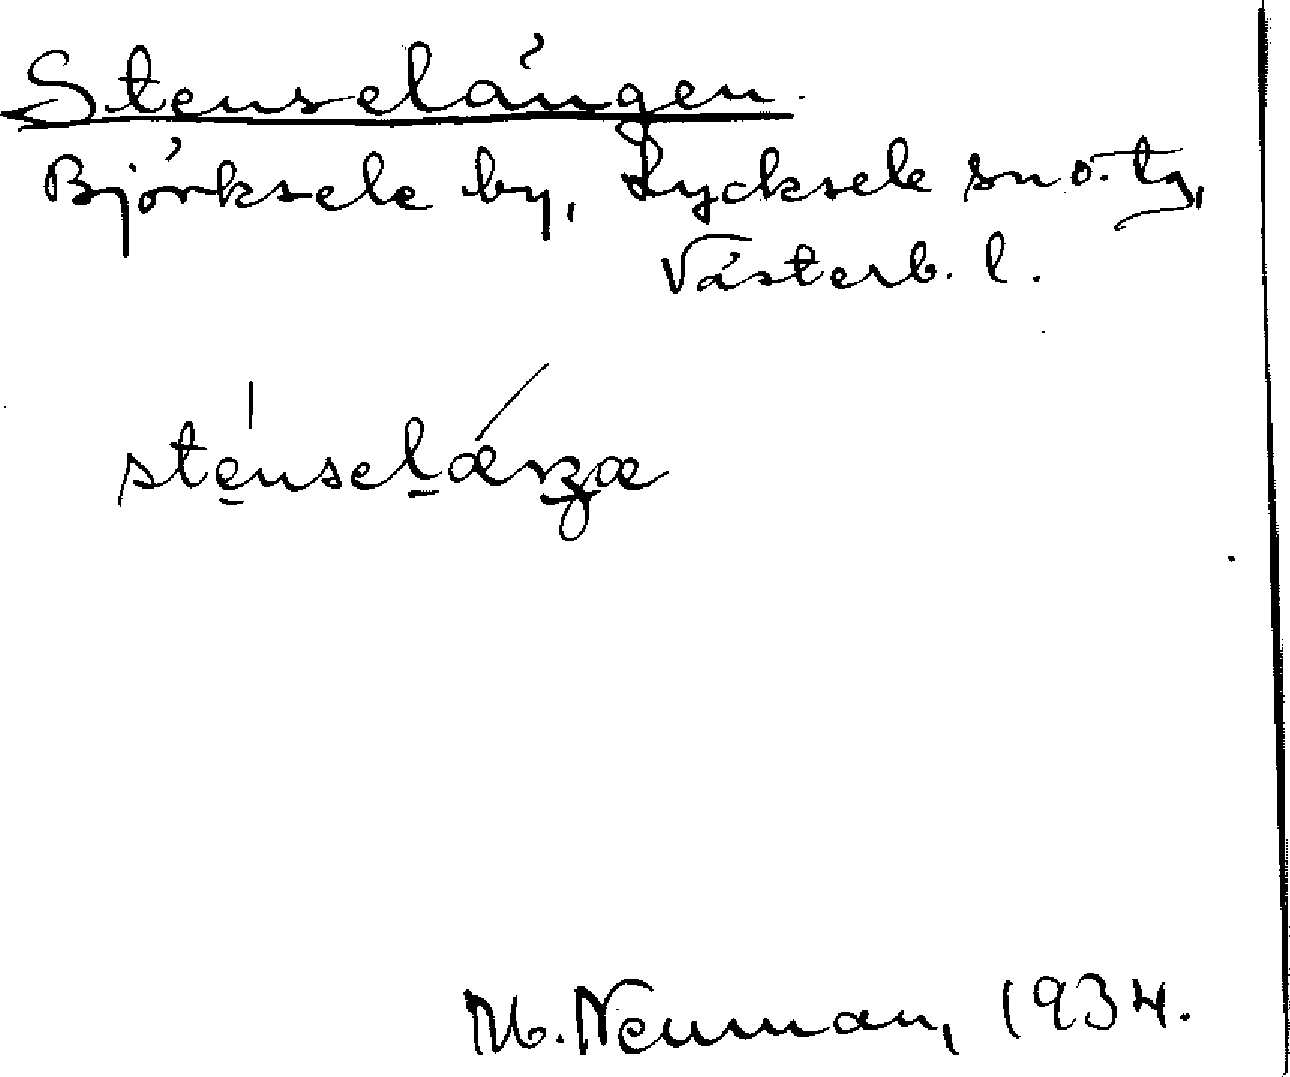 Stenselängen.
Björksele by, Lycksele sn o. tg,
Västerb. l.
M. Neuman, 1934.